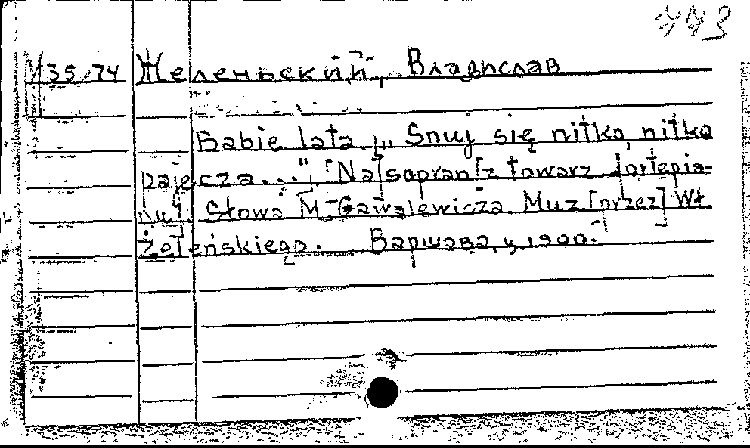 443
М 35/74 Желеньский, Владислав
Babie lata „Snuj się nitko, nitko
pajęcza..." [Na] sopran [z towarz fortepia-
nu]. Słowa M. Gawalewicza. Muz [przez] Wł.
Żeleńskiego. Варшава, у 1900.